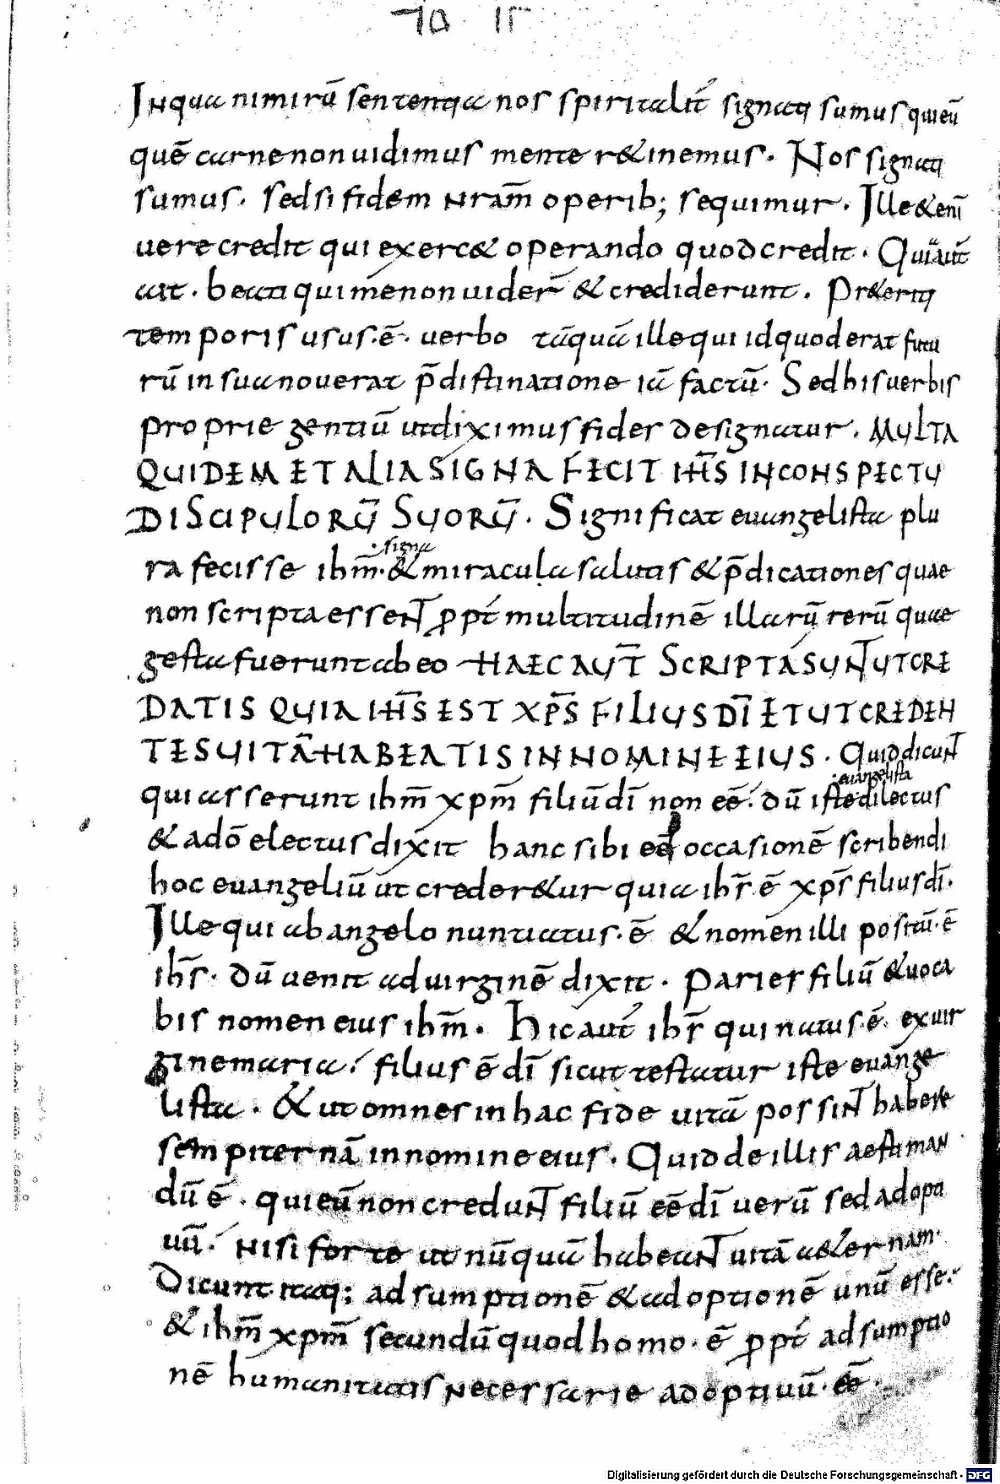 Inqua nimirū sententia nos spiritalit̄ signati sumus qui eū
quē carne non uidimus mente r&inemus. Nos signati
sumus. sed si fidem nr̄am operib; sequimur. Ille &eni
uere credit qui exerc& operando quod credit. Qui aut̄
ait. beati qui me non uider̄ & crediderunt. Pr&eriti
temporis usus. ē. uerbo tāquā ille qui id quod erat futu
rū in sua nouerat p̄distinatione iā factū. Sed his uerbis
proprie gentiū ut diximus fides designatur. MULTA
QUIDEM ET ALIA SIGNA FECIT IHS̄ IN CONSPECTU
DISCIPULORŪ SUORŪ. Significat euangelista plu
signa
ra fecisse ihm̄. & miracula salutis & p̄dicationes quae
non scripta essent ꝓpt̄ multitudinē illarū rerū quae
gesta fuerunt ab eo HAEC AUT̄ SCRIPTA SUNT UT CRE
DATIS QUIA IHS̄ EST XPS̄ FILIUS DĪ ET UT CREDEN
TES UITĀ HABEATIS IN NOMINE EIUS. Quid dicunt
euangelista
qui asserunt ihm̄ xpm̄ filiū dī non eē. dū iste dilectus
& a dō electus dixit hanc sibi eē occasionē scribendi
hoc euangeliū ut creder&ur quia ihs̄ ē xps̄ filius dī.
Ille qui ab angelo nuntiatus. ē & nomen illi positū. ē
ihs̄. dū uenit ad uirginē dixit. Paries filiū & uoca
bis nomen eius ihm̄. Hic aut̄ ihs̄ qui natus. ē. ex uir
gine maria. filius ē dī sicut testatur iste euange
lista. & ut omnes in hac fide uitā possint habere
sempiternā in nomine eius. Quid de illis aestiman
dū ē. qui eū non credunt filiū eē dī uerū sed adopti
uū. nisi forte ut nūquā habeant uitā a&ernam.
Dicunt itaq; adsumptionē & adoptionē unū esse.
& ihm̄ xpm̄ secundū quod homo. ē ꝓpt̄ adsumptio
nē humanitatis necessarie adoptiuū. eē.
Digitalisierung gefördert durch die Deutsche Forschungsgemeinschaft - DFG